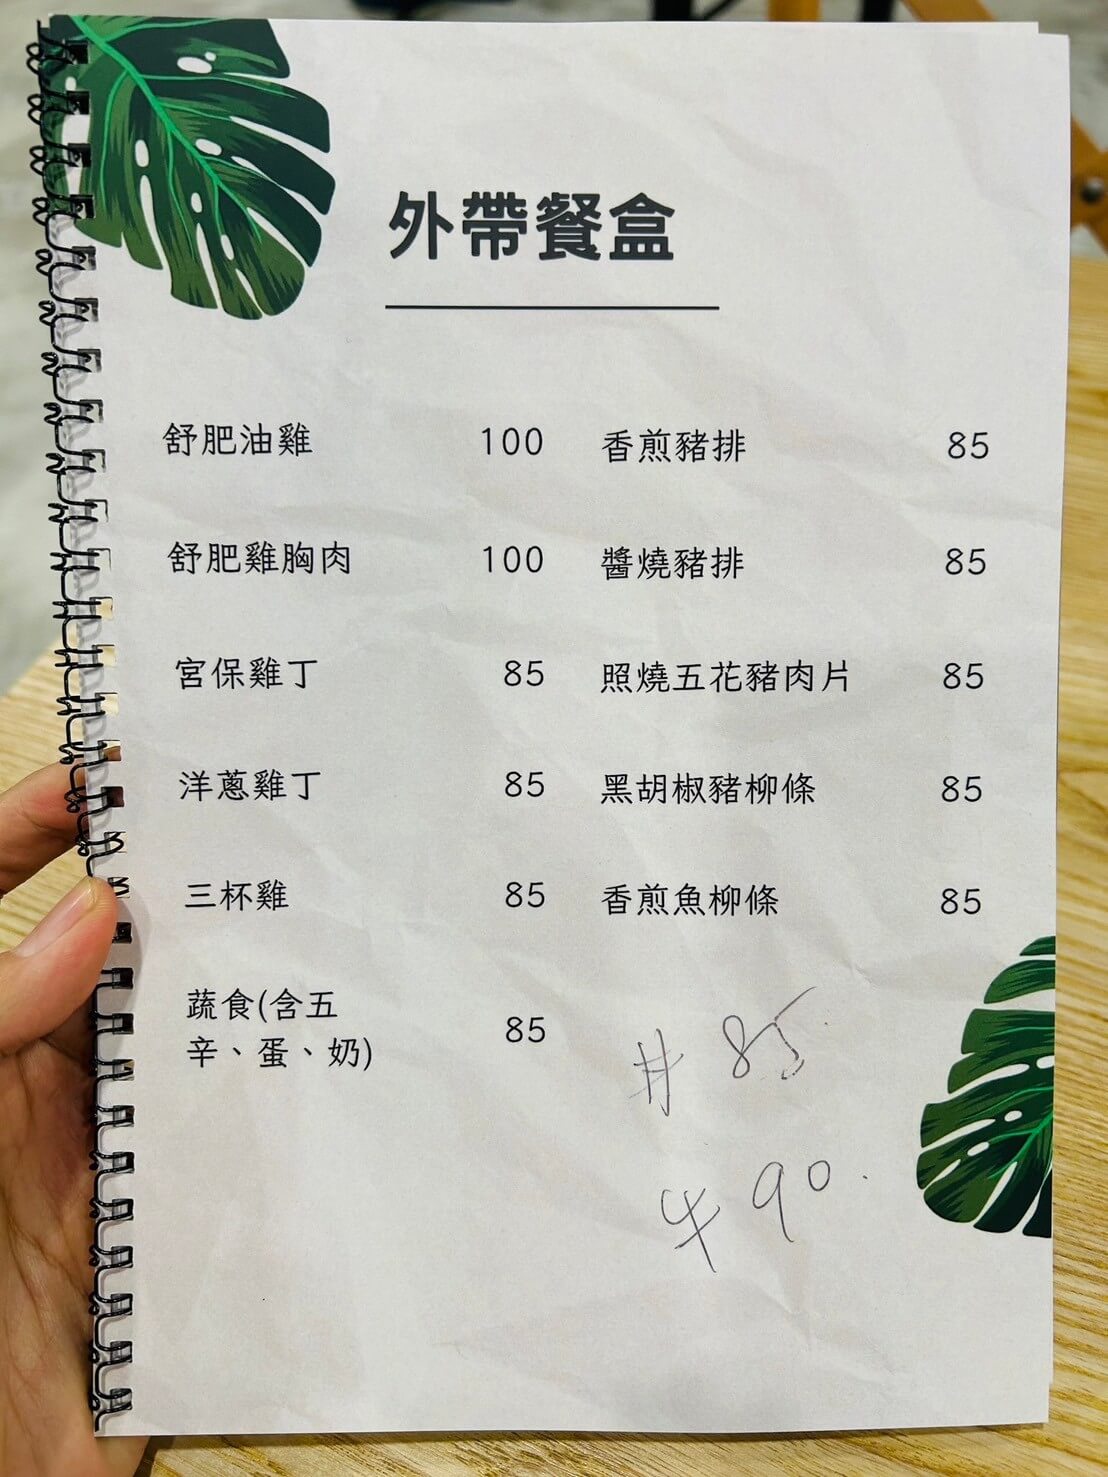 外帶餐盒
舒肥油雞 100
香煎豬排 85
舒肥雞胸肉 100
醬燒豬排 85
宮保雞丁 85
照燒五花豬肉片 85
洋蔥雞丁 85
黑胡椒豬柳條 85
三杯雞 85
香煎魚柳條 85
蔬食(含五
辛、蛋、奶) 85
# 85
牛 90.